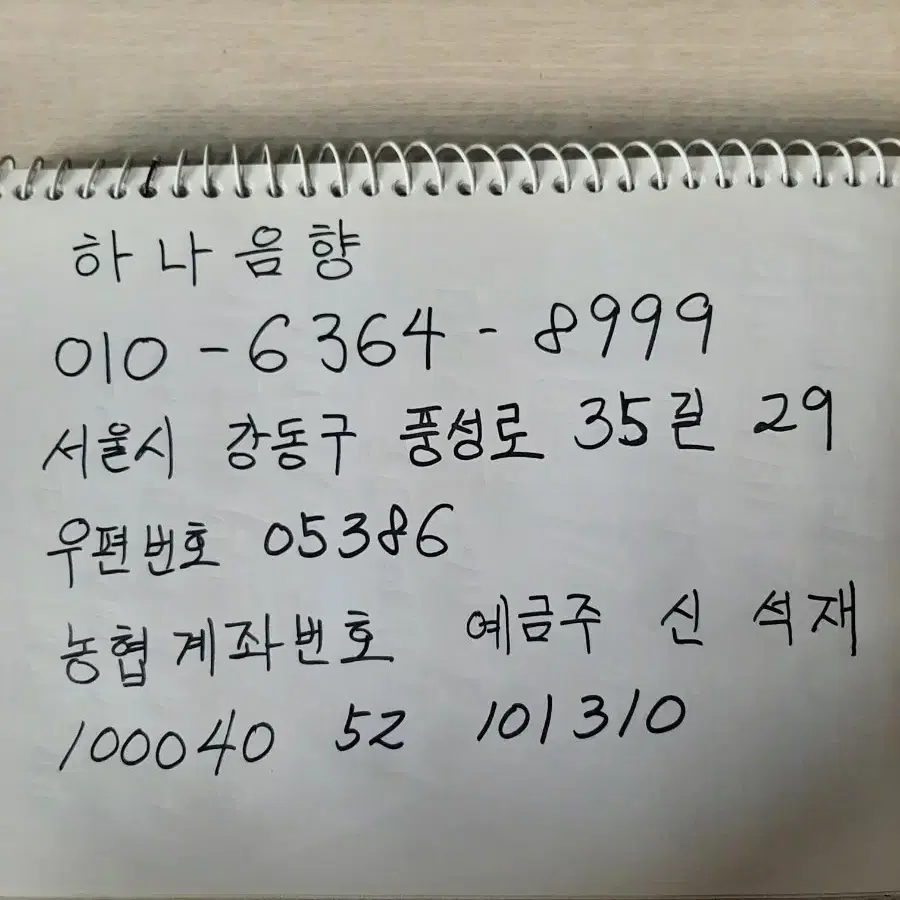 하나음향
010-6364-8999
서울시 강동구 풍성로 35길 29
우편번호 05386
농협계좌번호 예금주 신석재
100040 52 101310